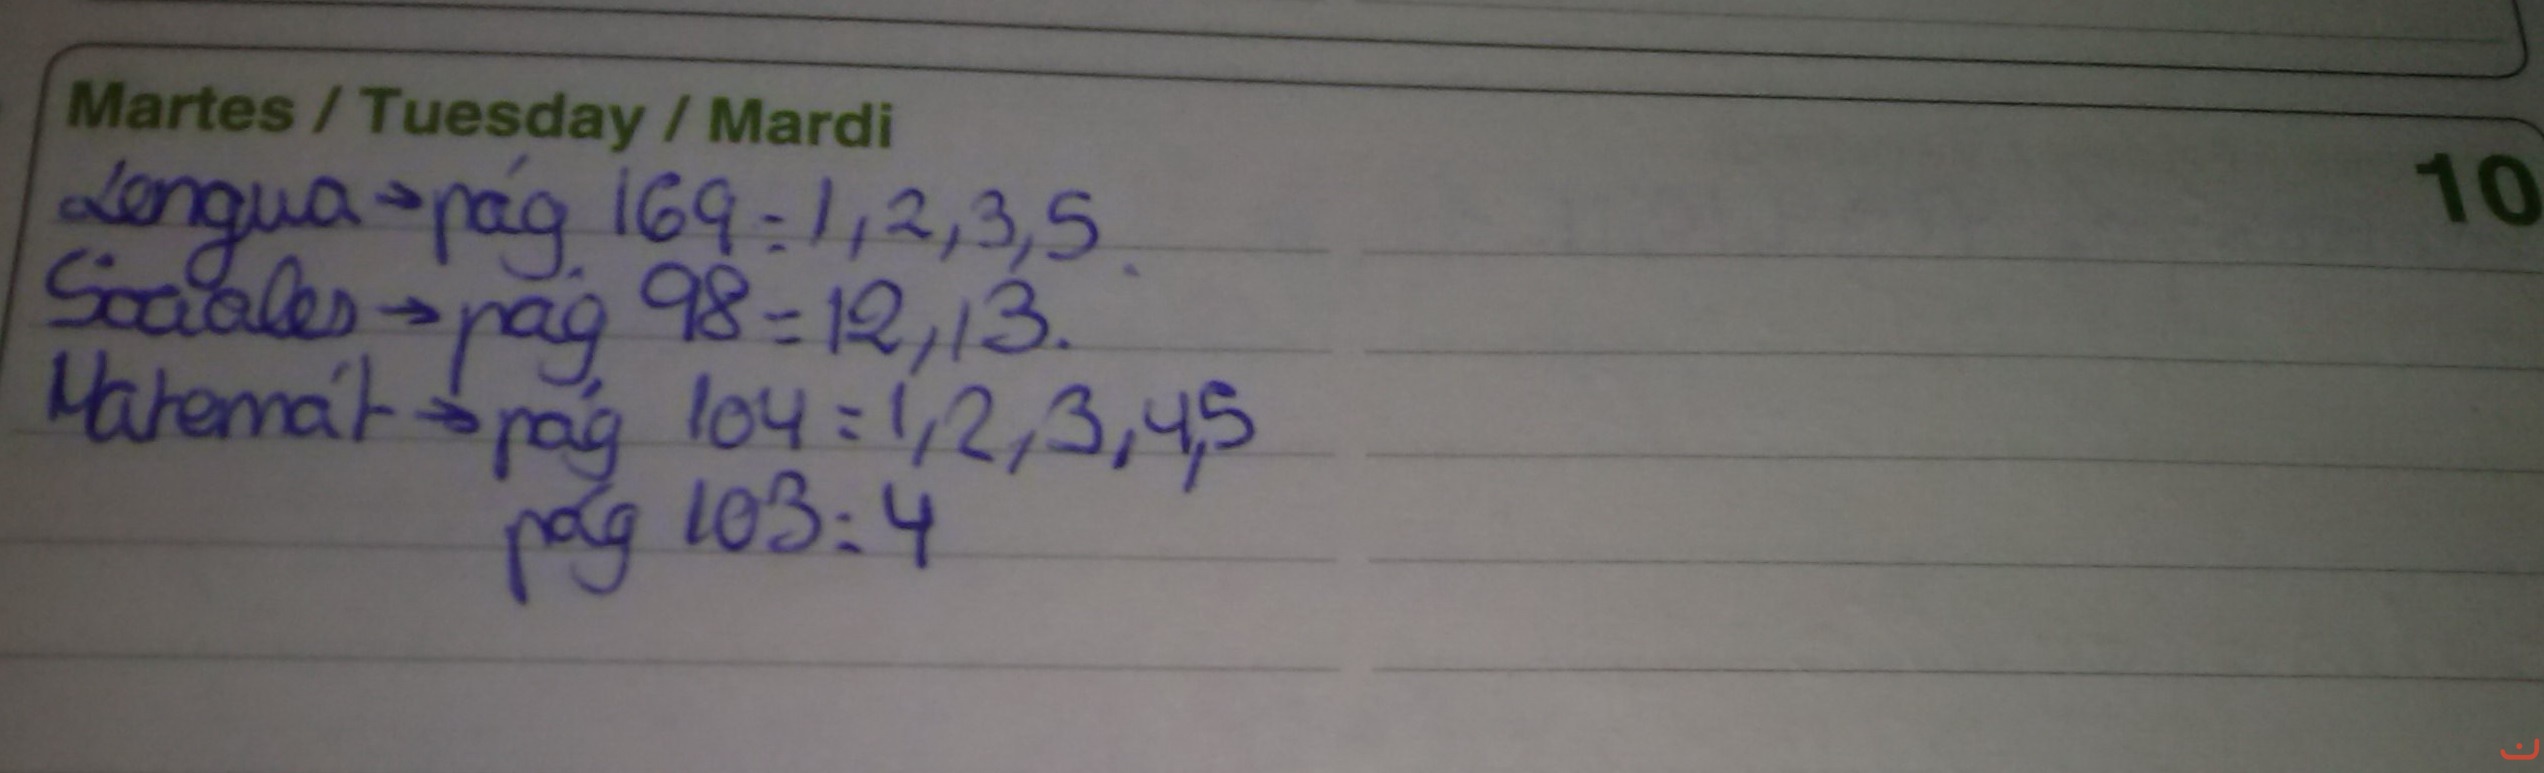 Martes / Tuesday / Mardi
10
Lengua → pág 169 = 1, 2, 3, 5.
Sociales → pág 98 = 12, 13.
Matemát → pág 104 = 1, 2, 3, 4, 5
pág 103 = 4